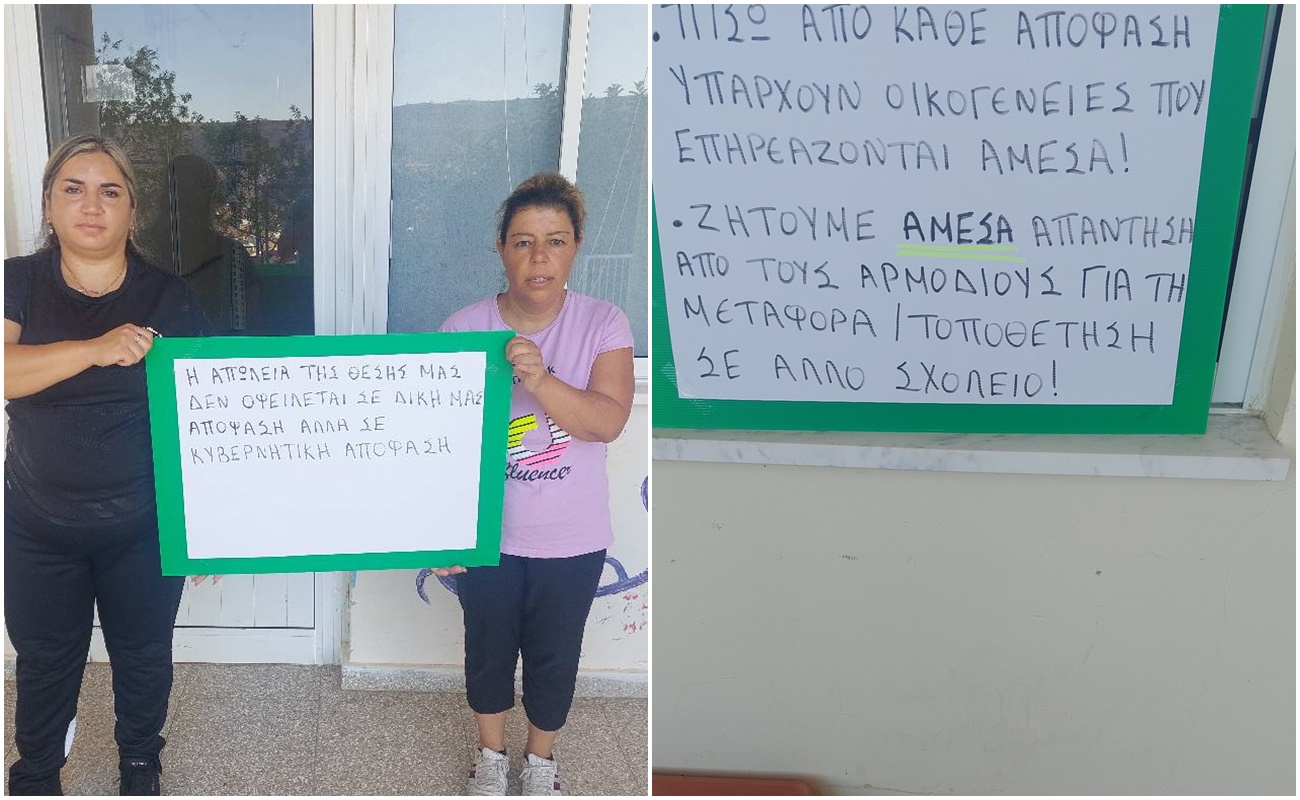 Η ΑΠΩΛΕΙΑ ΤΗΣ ΘΕΣΗΣ ΜΑΣ
ΔΕΝ ΟΦΕΙΛΕΤΑΙ ΣΕ ΔΙΚΗ ΜΑΣ
ΑΠΟΦΑΣΗ ΑΛΛΑ ΣΕ
ΚΥΒΕΡΝΗΤΙΚΗ ΑΠΟΦΑΣΗ
fluence
• ΠΙΣΩ ΑΠΟ ΚΑΘΕ ΑΠΟΦΑΣΗ
ΥΠΑΡΧΟΥΝ ΟΙΚΟΓΕΝΕΙΕΣ ΠΟΥ
ΕΠΗΡΕΑΖΟΝΤΑΙ ΑΜΕΣΑ!
• ΖΗΤΟΥΜΕ ΑΜΕΣΑ ΑΠΑΝΤΗΣΗ
ΑΠΟ ΤΟΥΣ ΑΡΜΟΔΙΟΥΣ ΓΙΑ ΤΗ
ΜΕΤΑΦΟΡΑ / ΤΟΠΟΘΕΤΗΣΗ
ΣΕ ΑΛΛΟ ΣΧΟΛΕΙΟ!